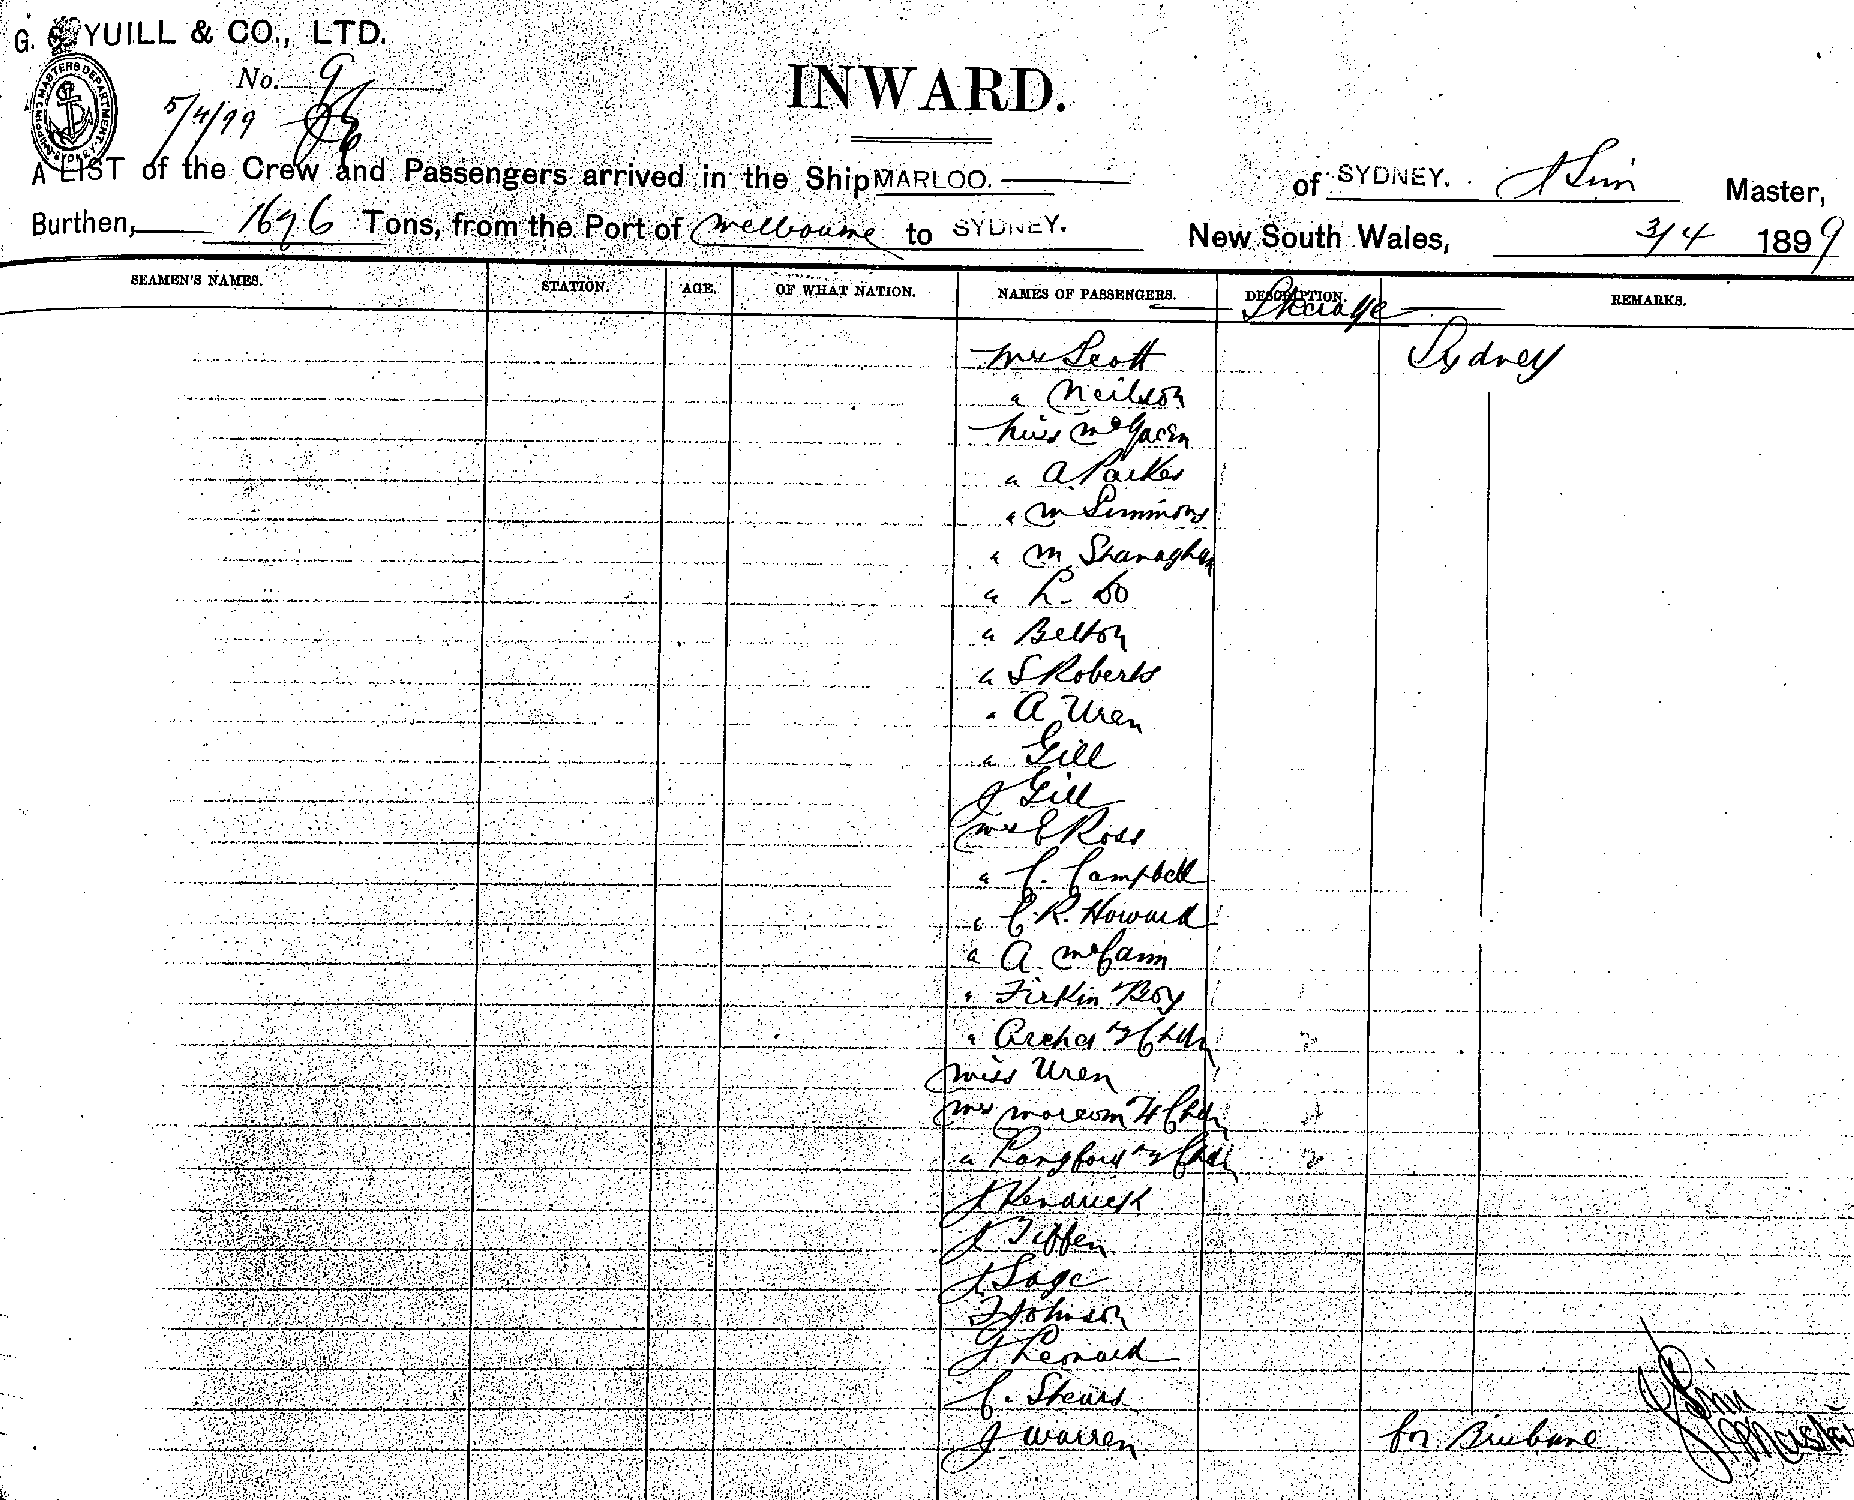 G. S. YUILL & CO., LTD.
No. 9
5/4/99
INWARD.
A LIST of the Crew and Passengers arrived in the Ship MARLOO. of SYDNEY. Master,
Burthen, 1696 Tons, from the Port of Melbourne to SYDNEY. New South Wales, 3/4 1899
SEAMEN'S NAMES. STATION. AGE. OF WHAT NATION. NAMES OF PASSENGERS. DESCRIPTION. REMARKS.
Steerage
Mrs Scott Sydney
" Neilson
Miss
" A. Parkes
" M Simmons
" M Shanaghan
" L. Do
" Belton
" S Roberts
" A Uren
" Gill
J Gill
Mrs C Ross
" C. Campbell
" C. R. Howard
" A McCann
" Firkin Boy
" Archer & 2 Chdn 2
Miss Uren
Mrs Morcom & 4 Chdn
" Langford & 2 Chdn 2
J Kendrick
J Tiffen
J Sage
F Johnson
J Leonard
C. Shears
J Warren for Brisbane
Master